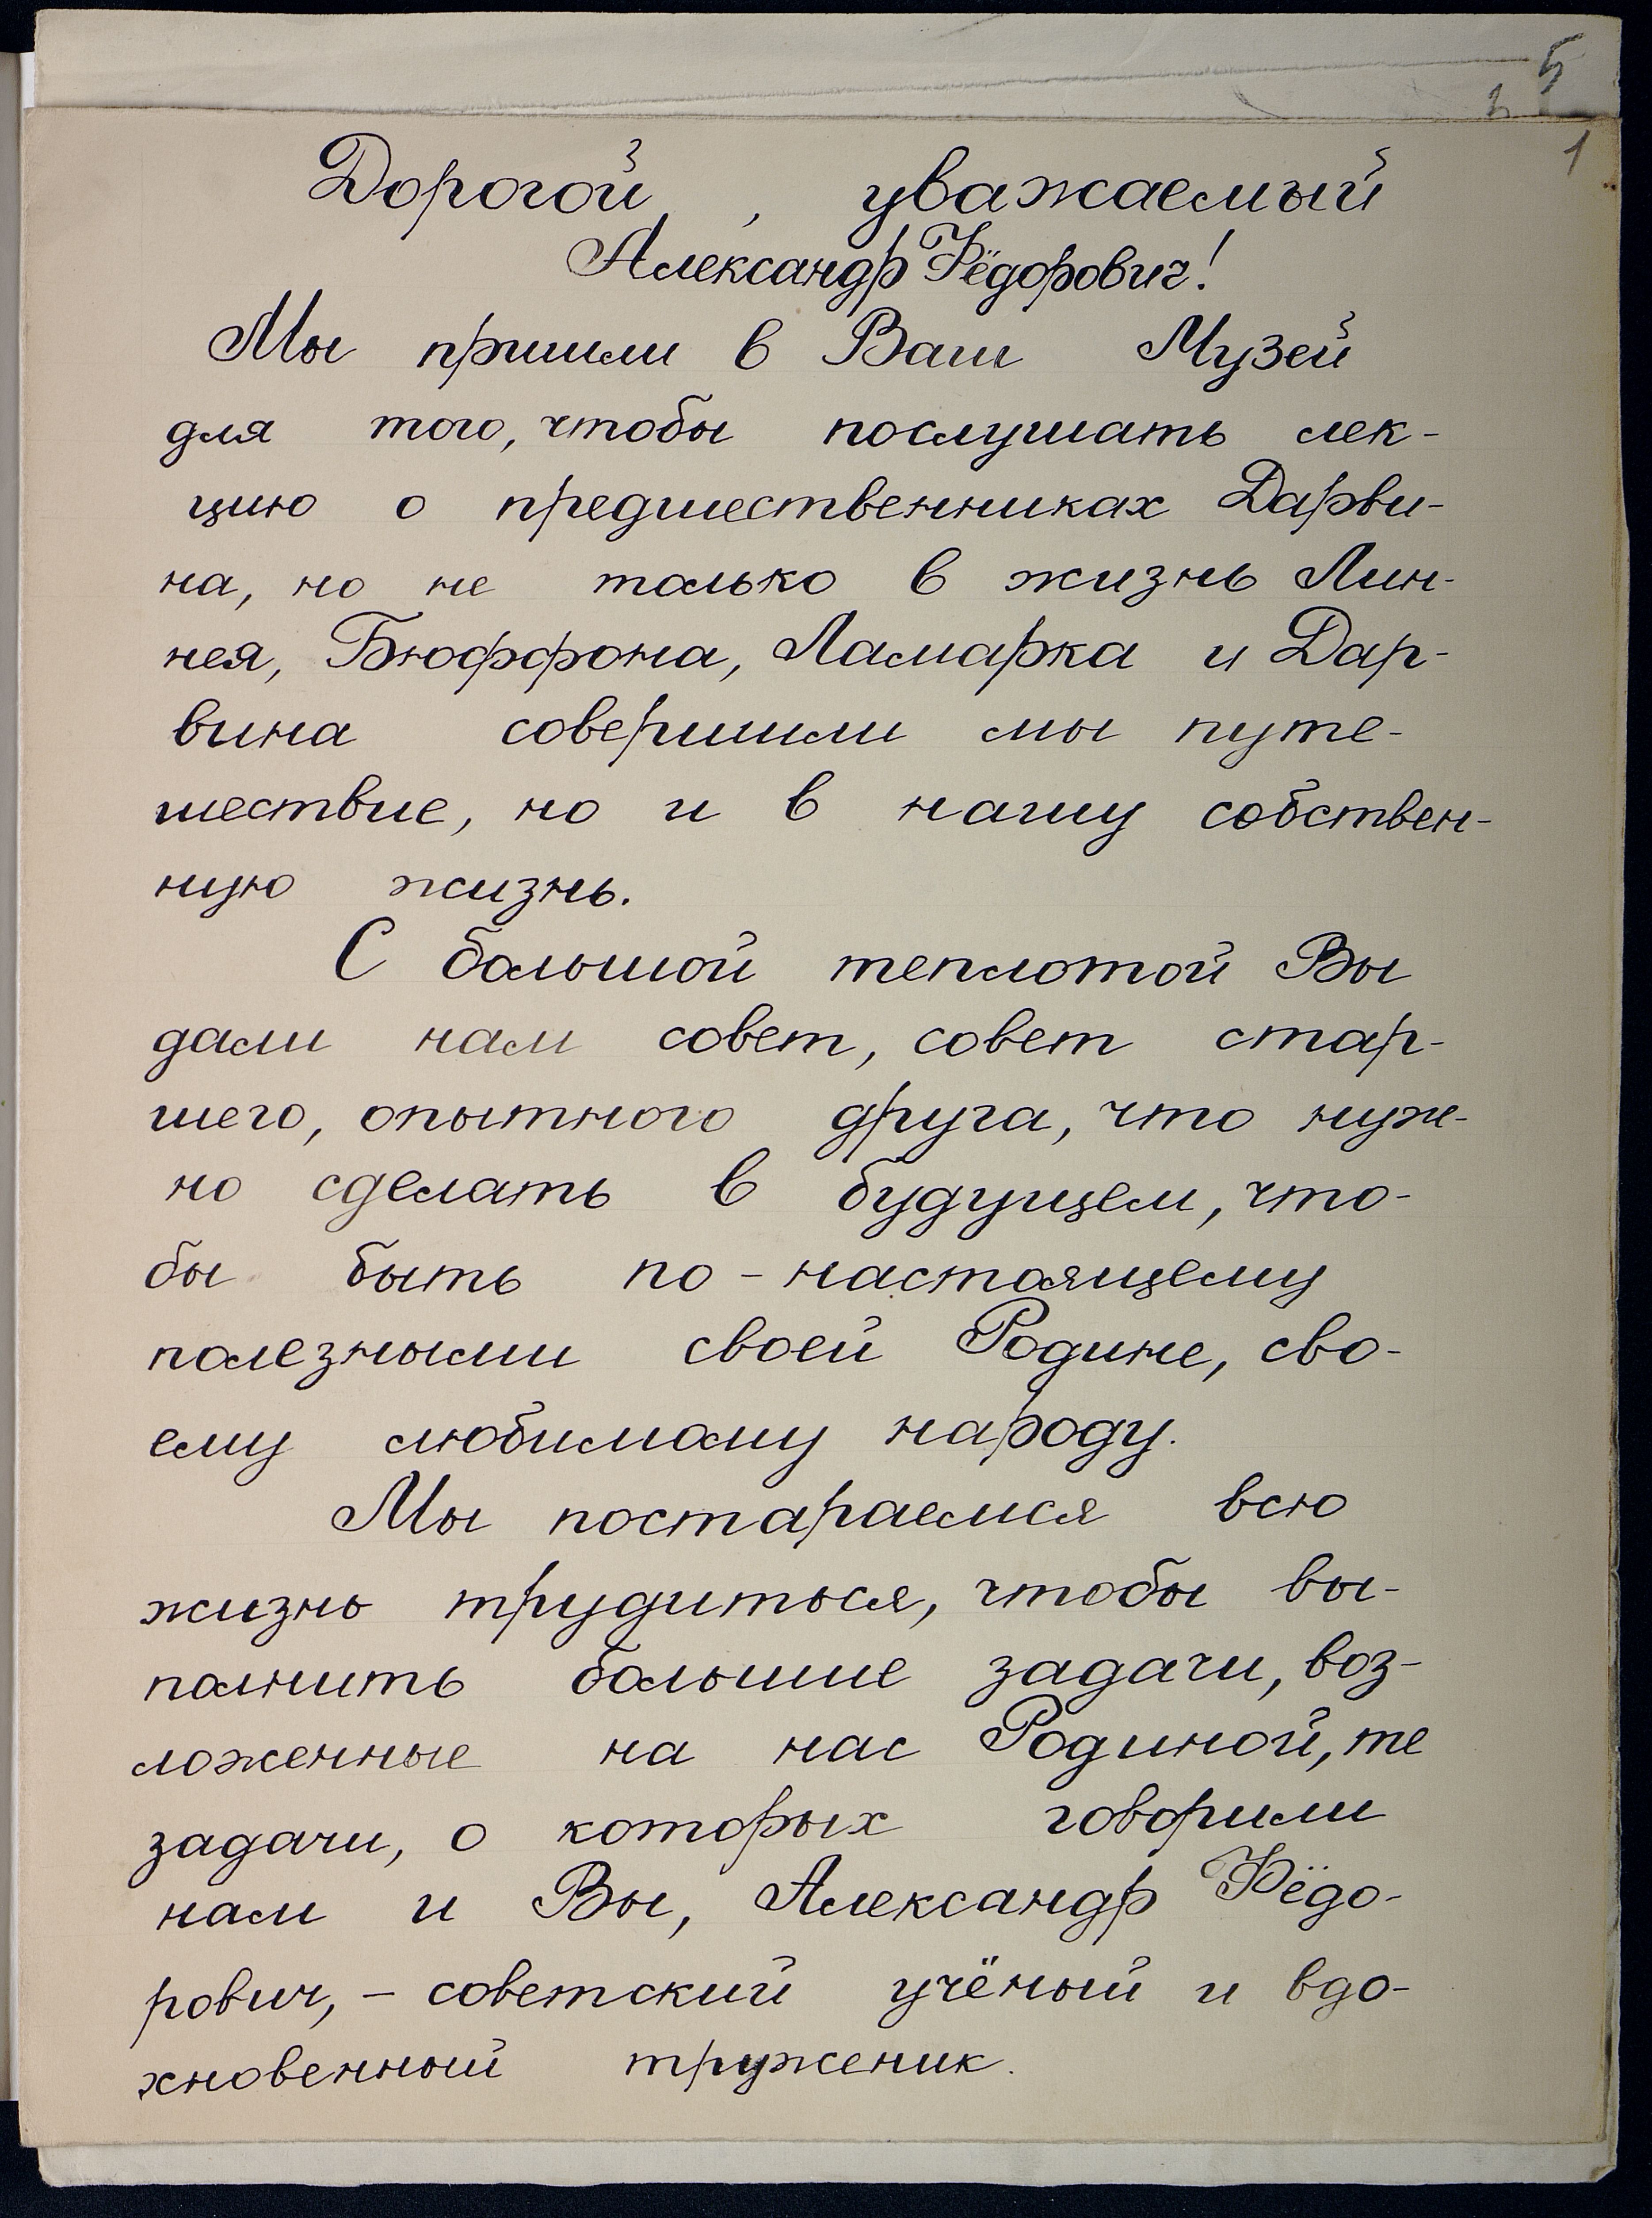 5
1
Дорогой, уважаемый
Александр Фёдорович!
Мы пришли в Ваш Музей
для того, чтобы послушать лек-
цию о предшественниках Дарви-
на, но не только в жизнь Лин-
нея, Бюффона, Ламарка и Дар-
вина совершили мы путе-
шествие, но и в нашу собствен-
ную жизнь.
С большой теплотой Вы
дали нам совет, совет стар-
шего, опытного друга, что нуж-
но сделать в будущем, что-
бы быть по-настоящему
полезными своей Родине, сво-
ему любимому народу.
Мы постараемся всю
жизнь трудиться, чтобы вы-
полнить большие задачи, воз-
ложенные на нас Родиной, те
задачи, о которых говорили
нам и Вы, Александр Фёдо-
рович, – советский учёный и вдо-
хновенный труженик.